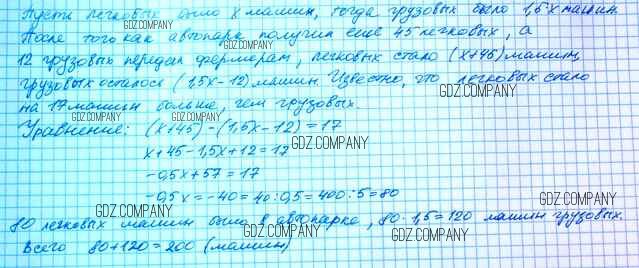 Пусть легковых было x машин, тогда грузовых было 1,5x машин.
После того как автопарк получил ещё 45 легковых, а
GDZ.COMPANY
12 грузовых передал фермерам, легковых стало (x+45) машин,
грузовых осталось (1,5x-12) машин. Известно, что легковых стало
GDZ.COMPANY
на 17 машин больше, чем грузовых.
GDZ.COMPANY
Уравнение: (x+45)-(1,5x-12)=17
GDZ.COMPANY
x+45-1,5x+12=17
GDZ.COMPANY
-0,5x+57=17
-0,5x=-40=40:0,5=400:5=80
GDZ.COMPANY
GDZ.COMPANY
80 легковых машин было в автопарке, 80·1,5=120 машин грузовых.
GDZ.COMPANY
Всего 80+120=200 (машин)
GDZ.COMPANY